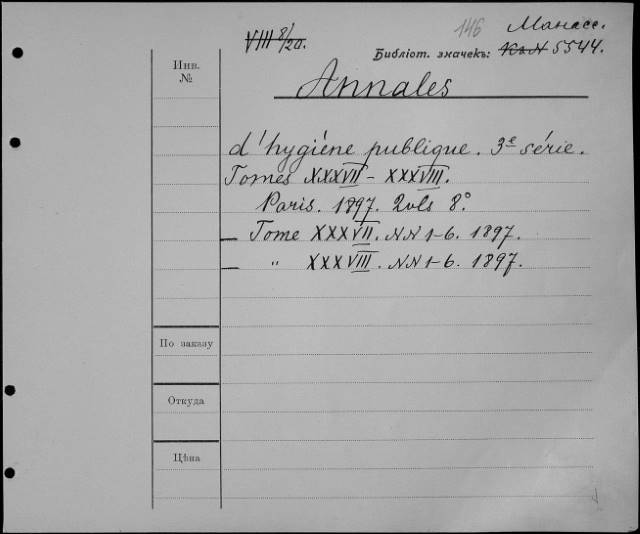 146 Манасс.
VIII 8/20.
Библіот. значекъ: 5544.
Инв.
№
Annales
d'hygiéne publique. 3e série.
Tomes XXXVII - XXXVIII.
Paris. 1897. 2vls 8°
— Tome XXXVII. NN 1-6. 1897.
— " XXXVIII. NN 1-6. 1897.
По заказу
Откуда
Цѣна